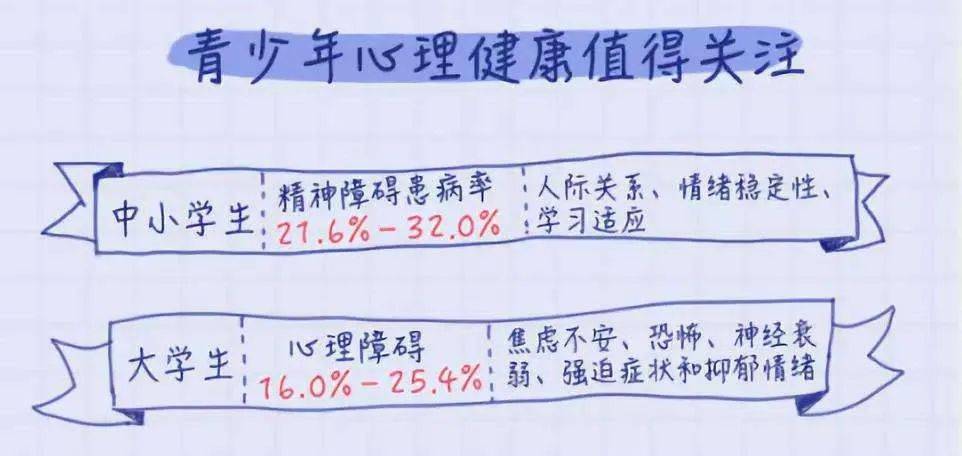 青少年心理健康值得关注
中小学生
精神障碍患病率
21.6%-32.0%
人际关系、情绪稳定性、
学习适应
大学生
心理障碍
16.0%-25.4%
焦虑不安、恐怖、神经衰
弱、强迫症状和抑郁情绪